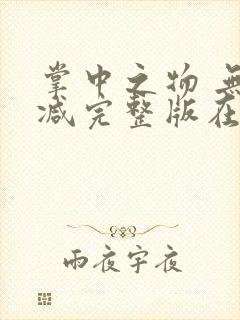 掌中之物 無
减完整版在
雨夜宇夜